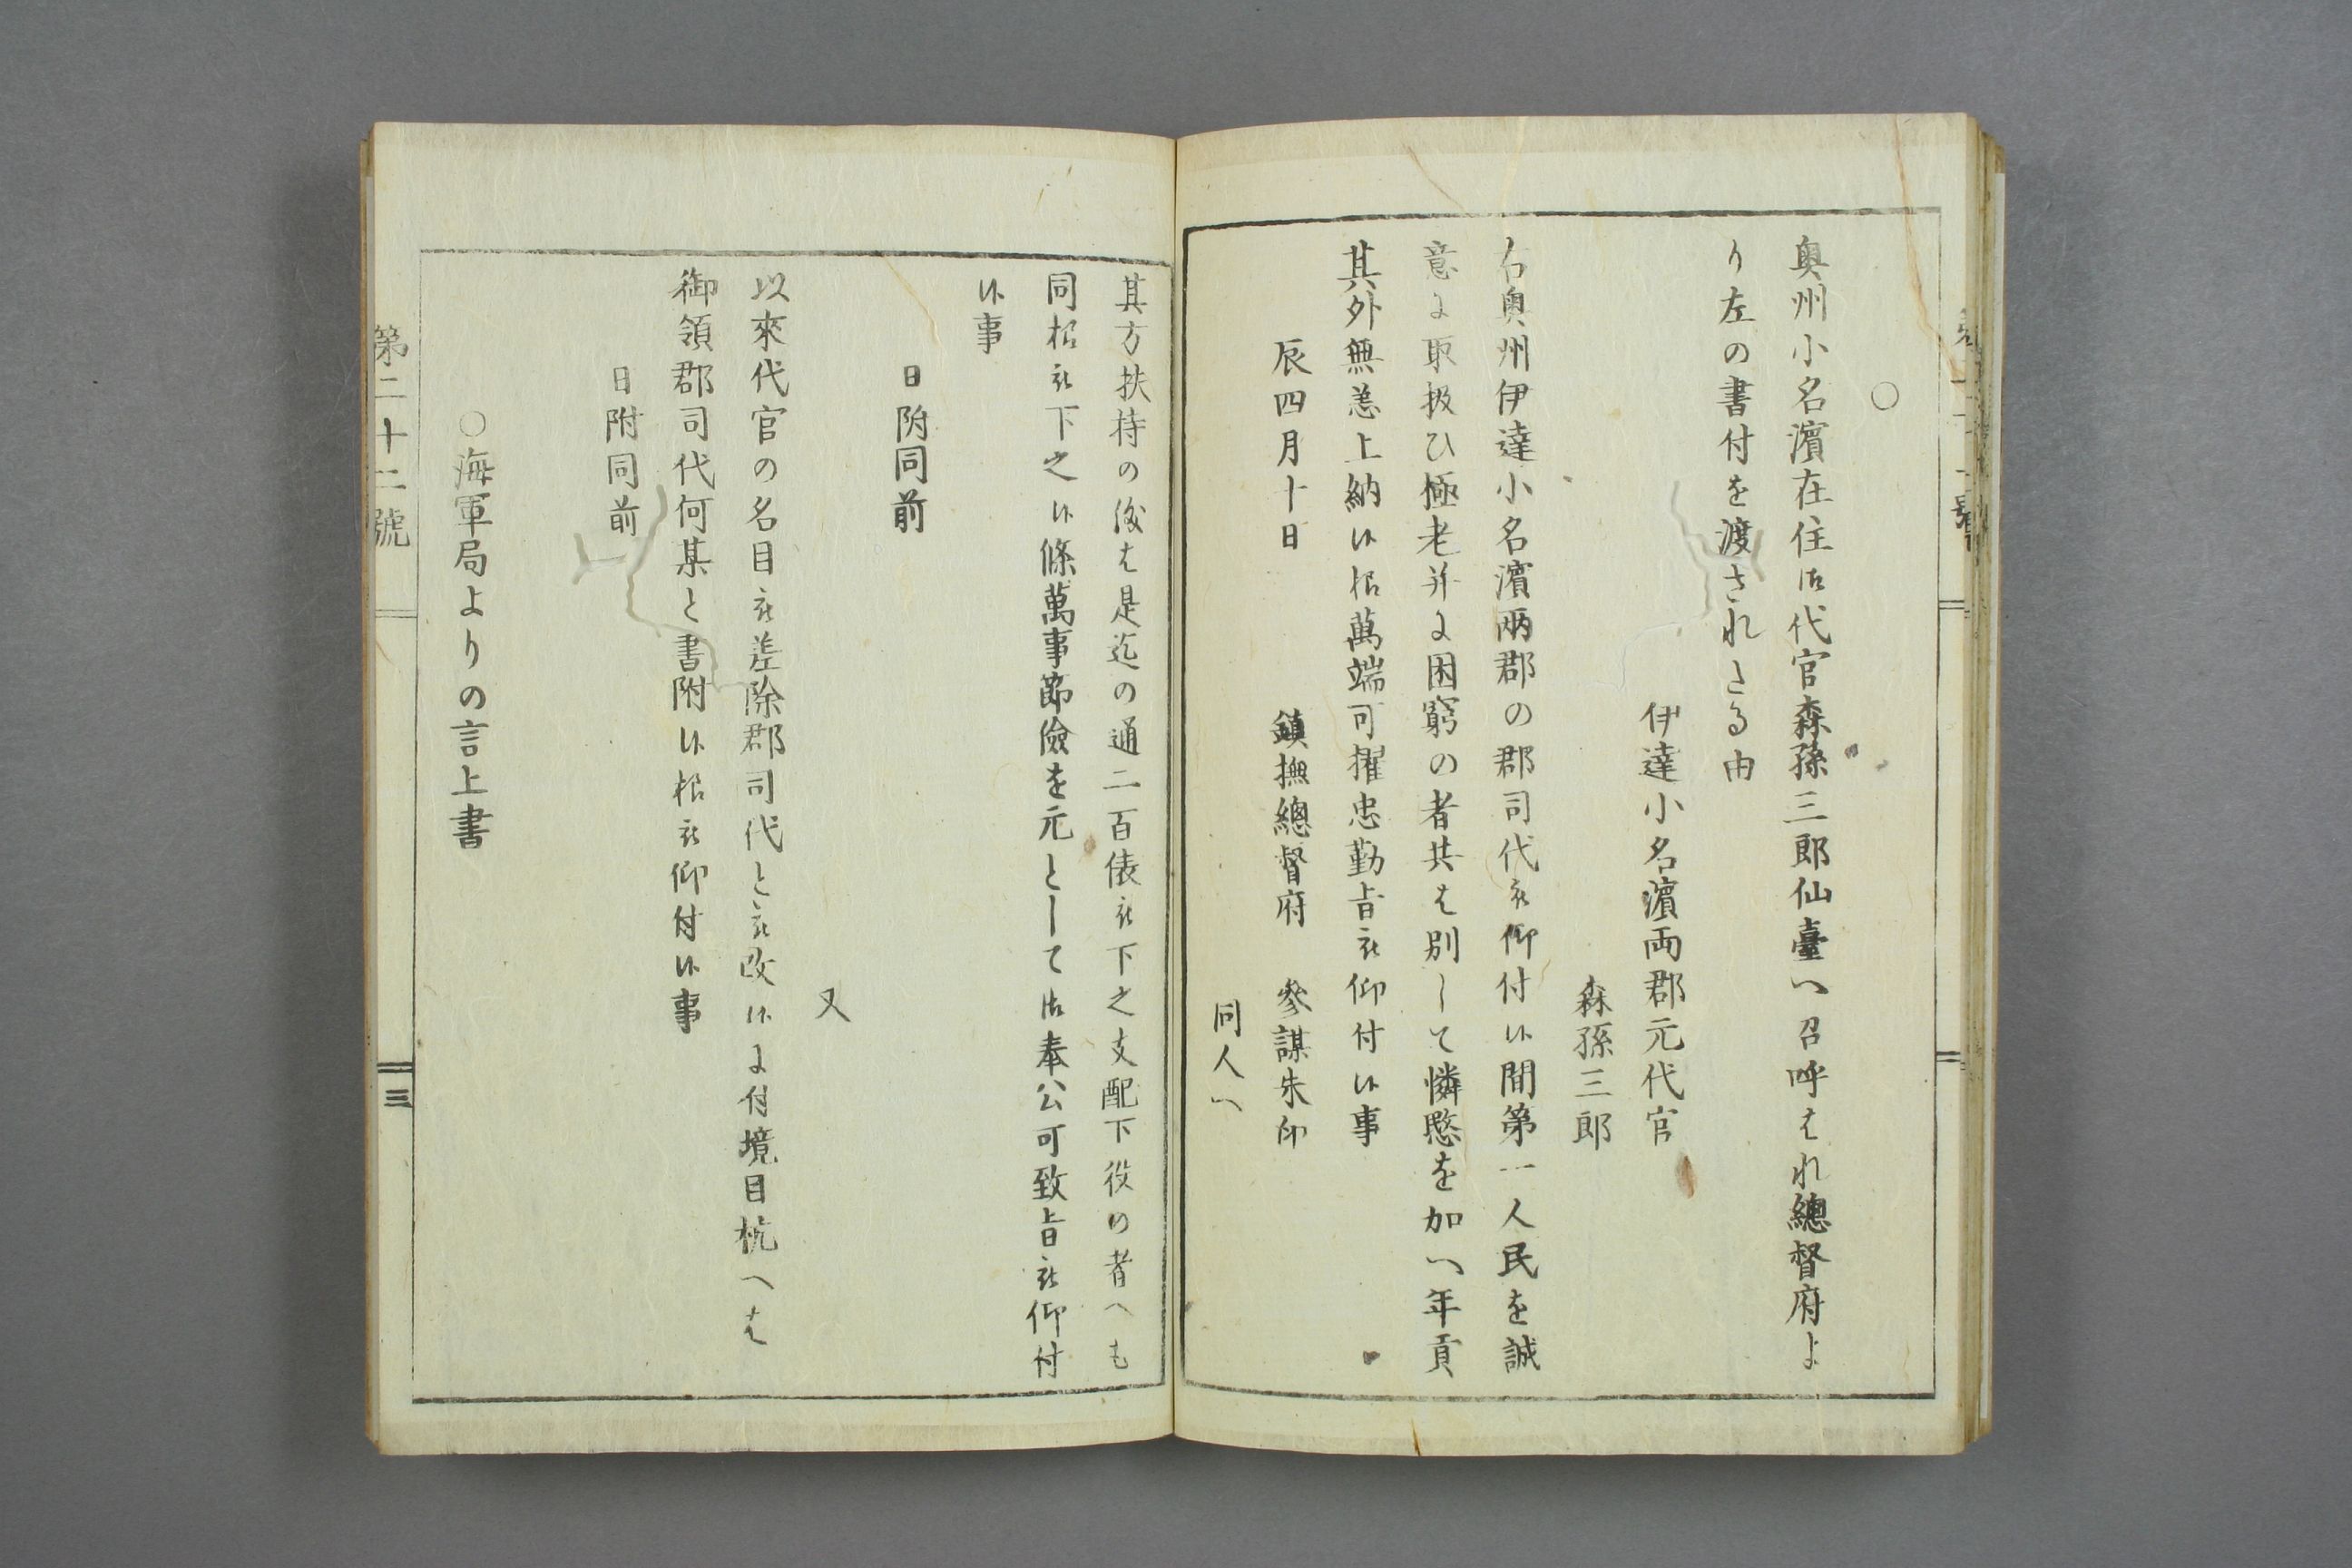 ○
奥州小名濱在住御代官森孫三郎仙臺へ召呼はれ總督府よ
り左の書付を渡されたる由
伊達小名濱両郡元代官
森孫三郎
右奥州伊達小名濱兩郡の郡司代被仰付候間第一人民を誠
意に取扱ひ極老并に困窮の者共は別して憐愍を加へ年貢
其外無恙上納候様萬端可擢忠勤旨被仰付候事
辰四月十日 鎮撫總督府 參謀朱印
同人へ
其方扶持の儀は是迄の通二百俵被下之支配下役の者へも
同樣被下之候條萬事節儉を元として御奉公可致旨被仰付
候事
日附同前
又
以來代官の名目被差除郡司代と被改候に付境目杭へは
御領郡司代何某と書附候様被仰付候事
日附同前
○海軍局よりの言上書
第二十二號
三